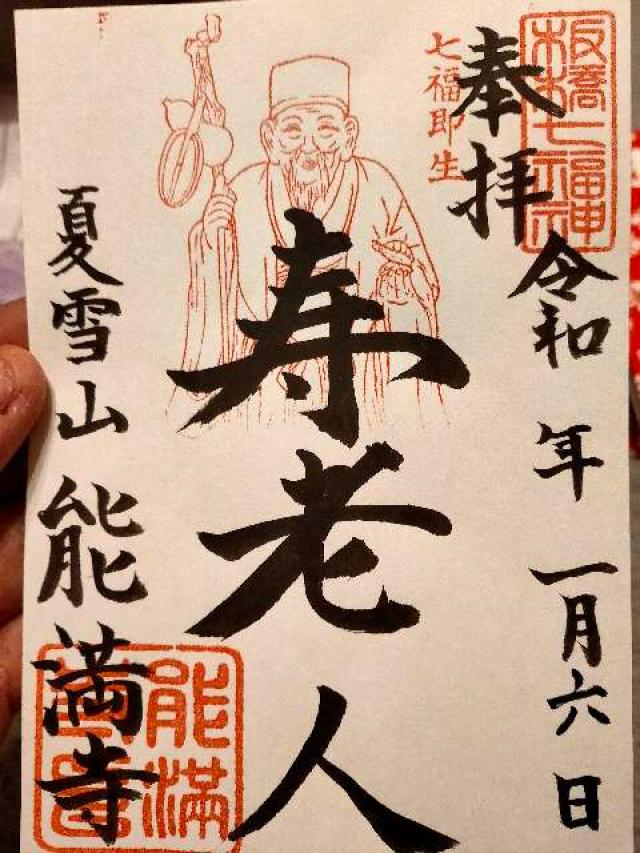 板橋七福神
奉拝
令和 年 一月六日
七福即生
寿老人
夏雪山 能満寺
能満